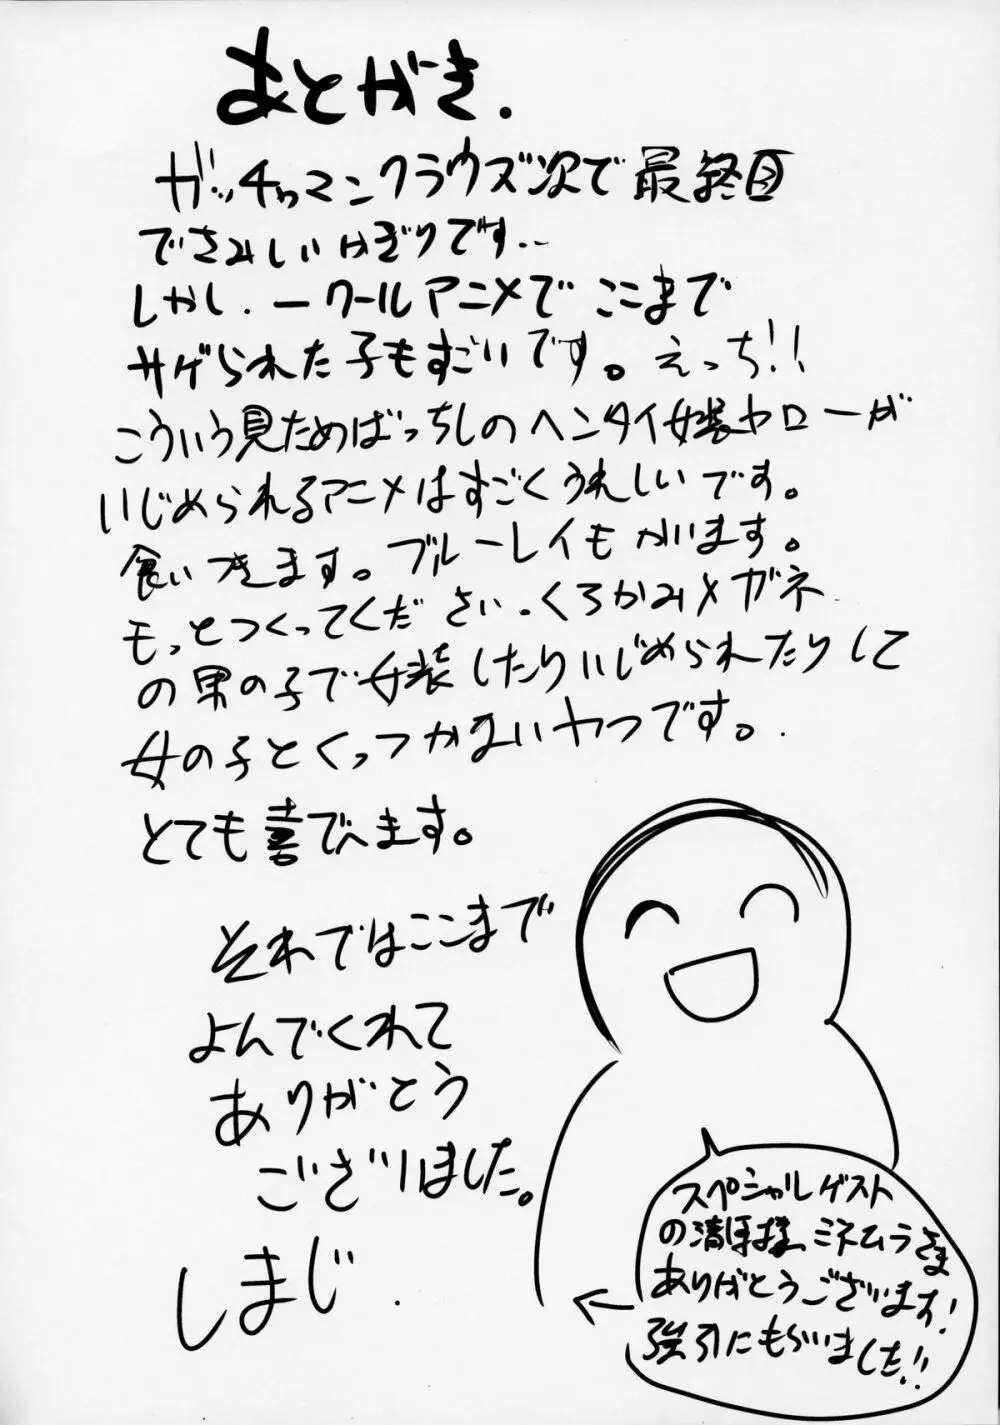 あとがき.
ガッチャマンクラウズ次で最終回
でさみしいかぎりです…
しかし.一クールアニメでここまで
サゲられた子もすごいです。えっち!!
こういう見ためばっちしのヘンタイ女装ヤローが
いじめられるアニメはすごくうれしいです。
食いつきます。ブルーレイもかいます。
もっとつくってください.くろかみメガネ
の男の子で女装したりいじめられたりして
女の子とくっつかないやつです。
とても喜びます。
それではここまで
よんでくれて
ありがとう
ございました。
しまじ.
スペシャルゲスト
の清ほ様、ミネムラさま
ありがとうございます!
強引にもらいました!!